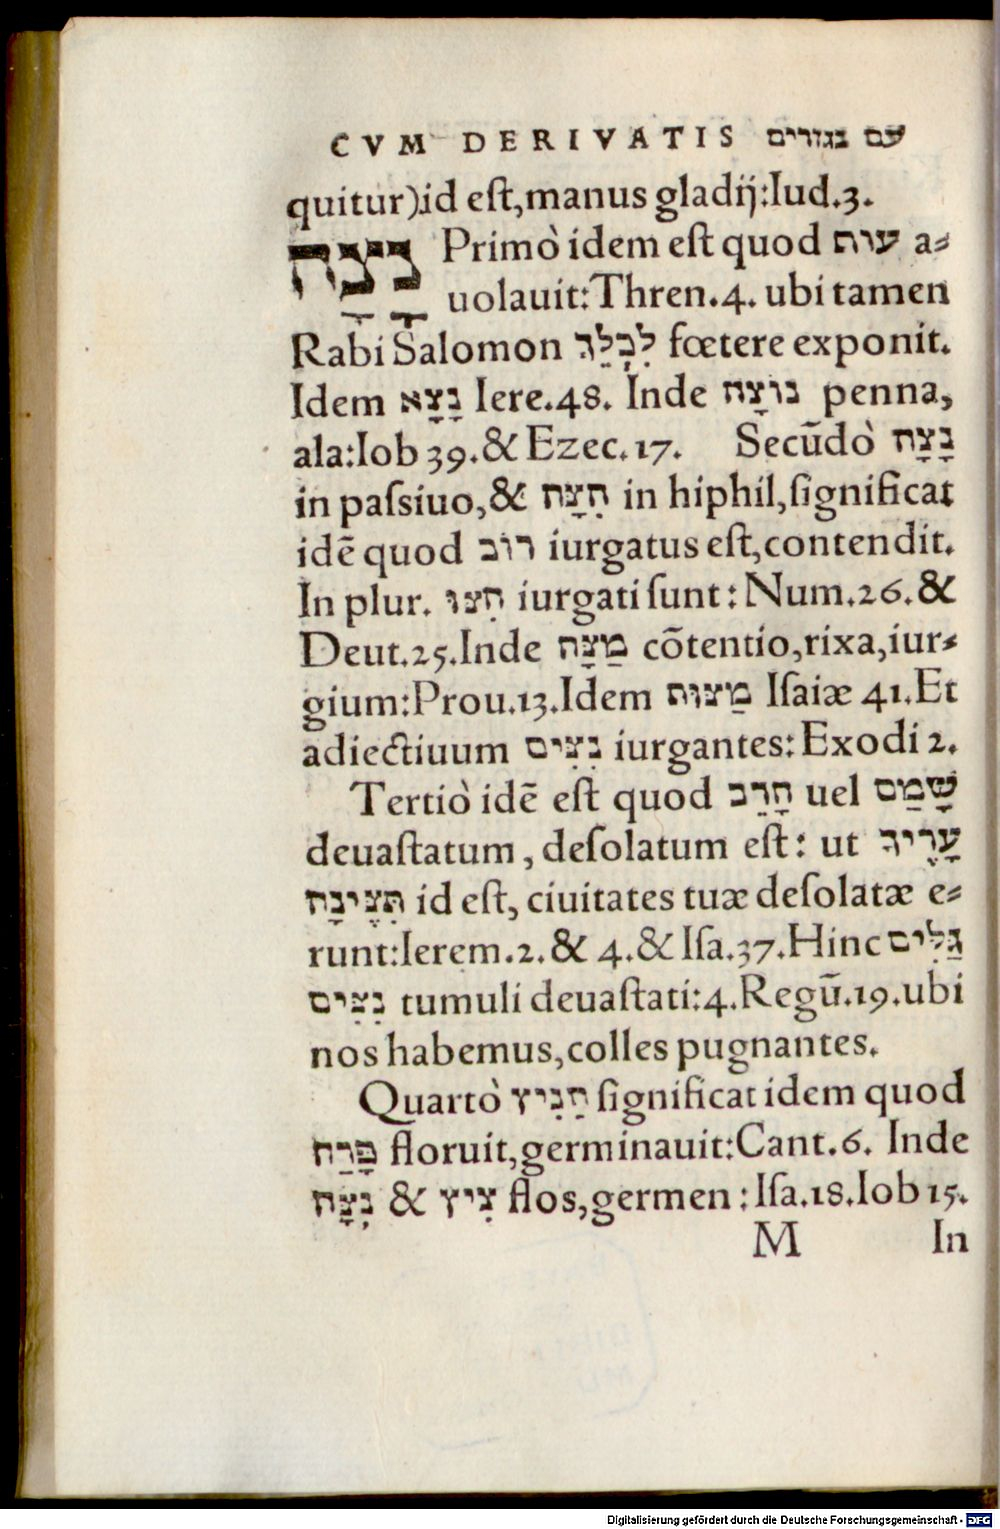 CVM DERIVATIS עם נגזרים
quitur).id eſt,manus gladij:Iud.3.
נָצָה Primò idem eſt quod עות a⸗
uolauit:Thren.4. ubi tamen
Rabi Salomon לִכְלֵךְ fœtere exponit.
Idem נָצָא Iere.48. Inde נוֹצָה penna,
ala:Iob 39.& Ezec.17. Secũdò נָצָה
in paſsiuo,& הִצָּה in hiphil,ſignificat
idẽ quod רוֹב iurgatus eſt,contendit.
In plur. הִצּוּ iurgati ſunt: Num.26.&
Deut.25.Inde מַצָּה cõtentio,rixa,iur⸗
gium:Prou.13.Idem מַצּוּת Iſaiæ 41.Et
adiectiuum נִצִּים iurgantes:Exodi 2.
Tertiò idẽ eſt quod חָרֵב uel שָׁמַם
deuaſtatum, deſolatum eſt: ut עָרֶיךָ
תִּצֶּינָה id eſt, ciuitates tuæ deſolatæ e⸗
runt:Ierem.2.& 4.& Iſa.37.Hinc גַּלִּים
נִצִּים tumuli deuaſtati:4.Regũ.19.ubi
nos habemus,colles pugnantes.
Quartò הֵנִיץ ſignificat idem quod
פָּרַח floruit,germinauit:Cant.6. Inde
נִצָּה & צִיץ flos,germen:Iſa.18.Iob 15.
M In
Digitalisierung gefördert durch die Deutsche Forschungsgemeinschaft - DFG